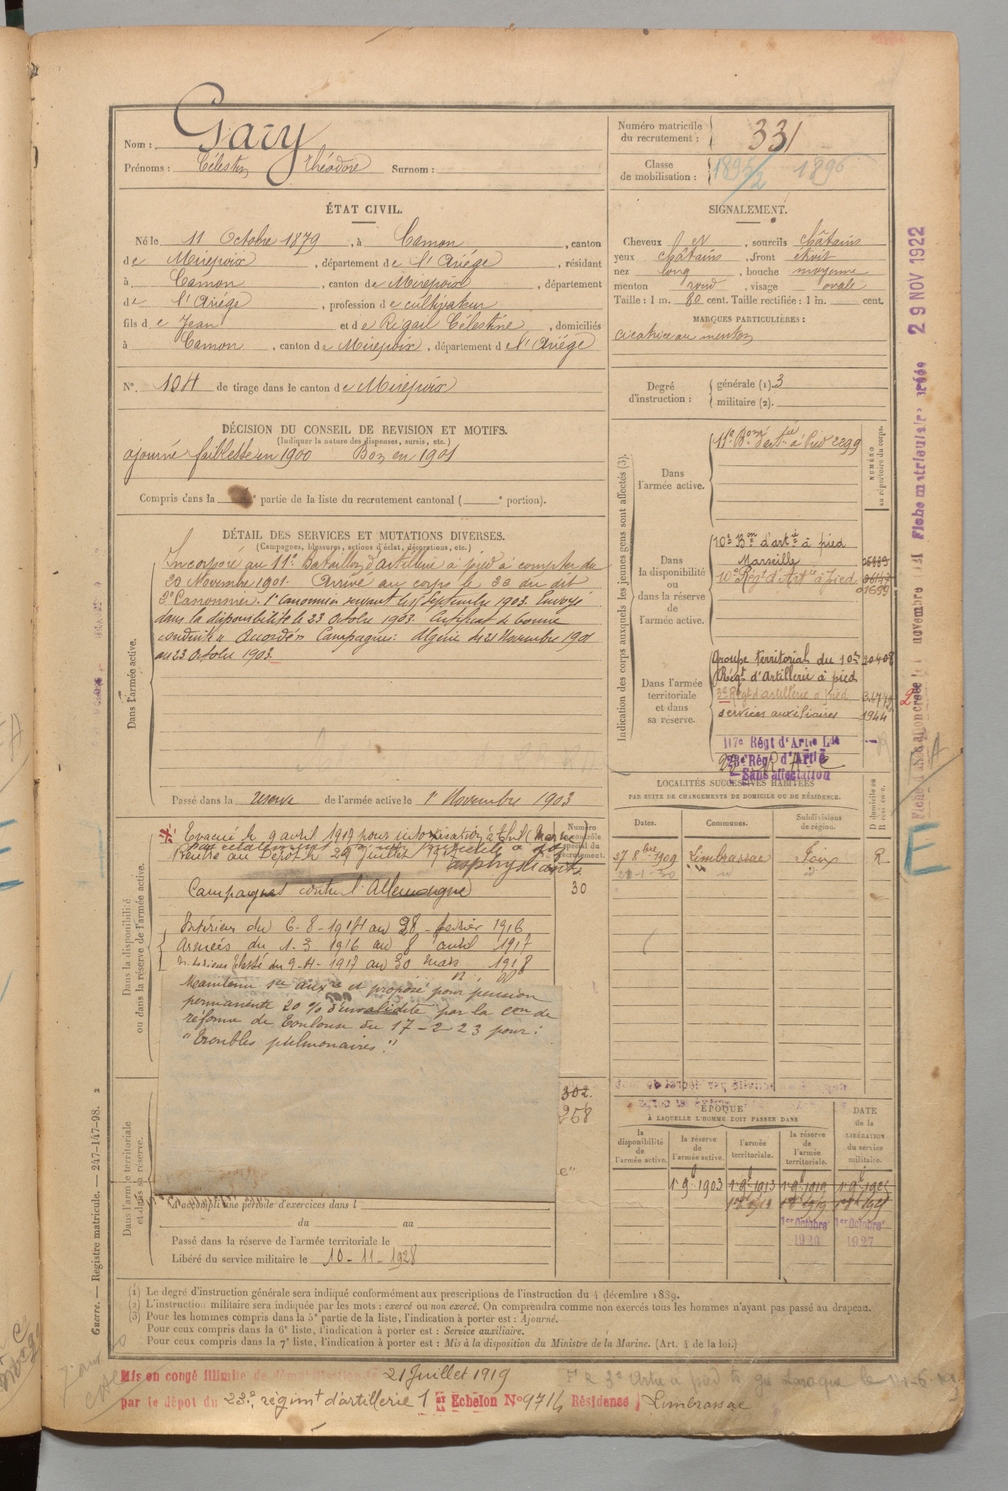 Nom : Gary
Prénoms : Célestin Théodore Surnom :
Numéro matricule du recrutement : 331
Classe de mobilisation : 1896
ÉTAT CIVIL.
Né le 11 Octobre 1879, à Camon, canton
de Mirepoix, département de l'Ariège, résidant
à Camon, canton de Mirepoix, département
de l'Ariège, profession de cultivateur
fils de Jean et de Rigail Célestine, domiciliés
à Camon, canton de Mirepoix, département de l'Ariège
N°. 104 de tirage dans le canton de Mirepoix
SIGNALEMENT.
Cheveux et sourcils châtains
yeux châtains, front étroit
nez long, bouche moyenne
menton rond, visage ovale
Taille : 1 m. 60 cent. Taille rectifiée : 1 m. cent.
MARQUES PARTICULIÈRES :
cicatrice au menton
Degré d'instruction : générale (1). 3
militaire (2).
DÉCISION DU CONSEIL DE REVISION ET MOTIFS.
(Indiquer la nature des dispenses, sursis, etc.)
ajourné faiblesse en 1900 Bon en 1901
Compris dans la e partie de la liste du recrutement cantonal ( e portion).
DÉTAIL DES SERVICES ET MUTATIONS DIVERSES.
(Campagnes, blessures, actions d'éclat, décorations, etc.)
Dans l'armée active.
Incorporé au 11e Bataillon d'artillerie à pied à compter du
20 Novembre 1901. Arrivé au corps le 20 du dit
2e Canonnier. 1er Canonnier servant le 1er Septembre 1903. Envoyé
dans la disponibilité le 23 Octobre 1903. Certificat de bonne
conduite "Accordé" Campagnes : Algérie du 21 Novembre 1901
au 23 Octobre 1903.
Passé dans la réserve de l'armée active le 1er Novembre 1903
Indication des corps auxquels les jeunes gens sont affectés (3).
NUMÉRO au répertoire du corps.
Dans l'armée active.
11e Bon d'artie à pied 2299
Dans la disponibilité ou dans la réserve de l'armée active.
10e Bon d'artie à pied
Marseille
10e Régt d'Artie à pied
Dans l'armée territoriale et dans sa réserve.
Groupe territorial du 10e 20408
Régt d'Artillerie à pied
3e Régt d'artillerie à pied
services auxiliaires 1944
117e Régt d'Artie Lde
28e Régt d'Artie
Sans affectation
LOCALITÉS SUCCESSIVES HABITÉES
PAR SUITE DE CHANGEMENTS DE DOMICILE OU DE RÉSIDENCE.
Dates. Communes. Subdivisions de région. D domicile ou R résidence.
27 8bre 1909 Limbrassac Foix R
Dans la disponibilité ou dans la réserve de l'armée active.
Numéro au contrôle spécial du recrutement.
30
Evacué le 9 avril 1917 pour intoxication
Rentré au Dépôt le 29 juillet 1917
asphyxiants
Campagnes contre l'Allemagne
Intérieur du 6-8-1914 au 28 février 1916
Armées du 1-3 1916 au 8 avril 1917
Intérieur blessé du 9-4-1917 au 30 mars 1918
Maintenu sce auxre et proposé pour pension
permanente 20 % d'invalidité par la Con de
réforme de Toulouse du 17-2-23 pour :
"Troubles pulmonaires."
302.
258
ÉPOQUE
À LAQUELLE L'HOMME DOIT PASSER DANS
la disponibilité de l'armée active. la réserve de l'armée active. l'armée territoriale. la réserve de l'armée territoriale. DATE de la LIBÉRATION du service militaire.
1er 9b 1903 1er 9b 1913 1er 9b 1919
1er Octobre 1920 1er Octobre 1927
Dans l'armée territoriale et dans sa réserve.
A accompli une période d'exercices dans l
du au
Passé dans la réserve de l'armée territoriale le
Libéré du service militaire le 10-11-1928
Guerre. — Registre matricule. — 247-147-98. 2
(1) Le degré d'instruction générale sera indiqué conformément aux prescriptions de l'instruction du 4 décembre 1889.
(2) L'instruction militaire sera indiquée par les mots : exercé ou non exercé. On comprendra comme non exercés tous les hommes n'ayant pas passé au drapeau.
(3) Pour les hommes compris dans la 5e partie de la liste, l'indication à porter est : Ajourné.
Pour ceux compris dans la 6e liste, l'indication à porter est : Service auxiliaire.
Pour ceux compris dans la 7e liste, l'indication à porter est : Mis à la disposition du Ministre de la Marine. (Art. 4 de la loi.)
Mis en congé illimité de démobilisation le 21 Juillet 1919
par le dépot du 23e régimt d'artillerie 1er Echelon N° 9714 Résidence Limbrassac
29 NOV 1922